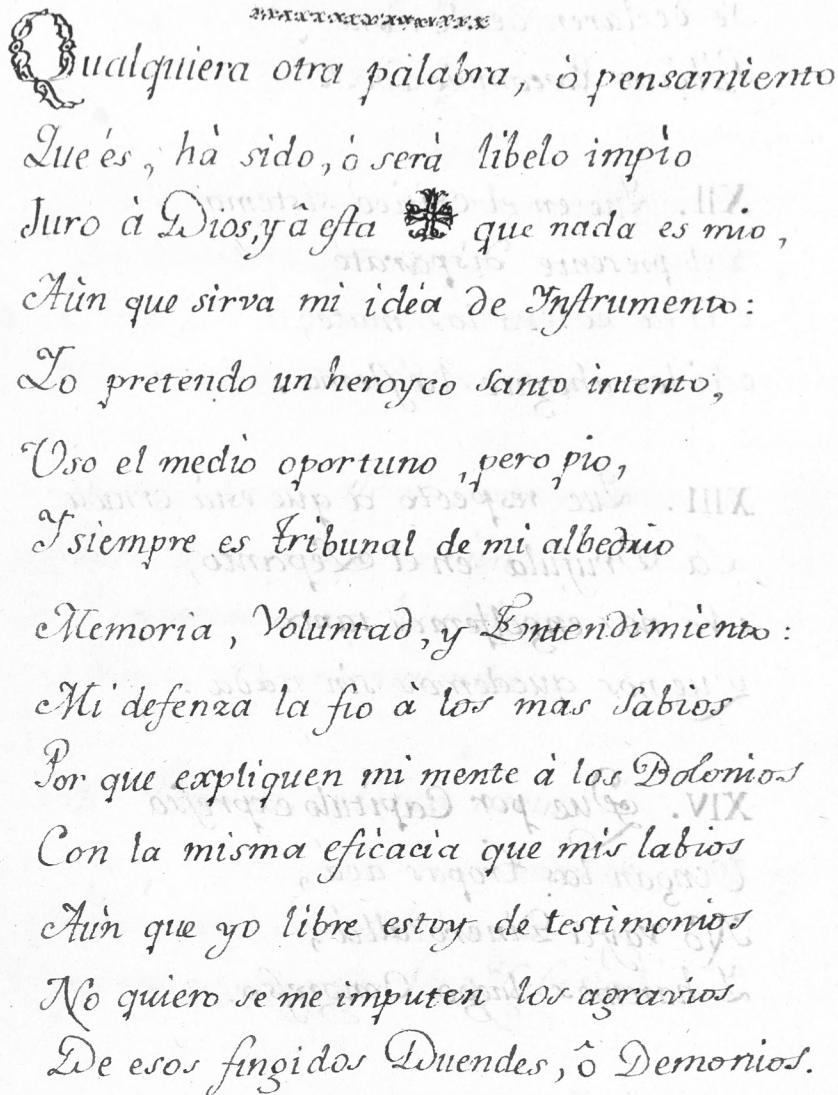 Qualquiera otra palabra, ò pensamiento
Que és, hà sido, ò serà libelo impìo
Juro à Dios, y â esta ✠ que nada es mio,
Aùn que sirva mi idéa de Instrumento:
Yo pretendo un heroyco santo intento,
Uso el medio oportuno, pero pio,
Y siempre es tribunal de mi albedrio
Memoria, Voluntad, y Entendimiento:
Mi defenza la fio à los mas Sabios
Por que expliquen mi mente à los Bolonios
Con la misma eficacia que mis labios
Aùn que yo libre estoy de testimonios
No quiero se me imputen los agravios
De esos fingidos Duendes, ô Demonios.